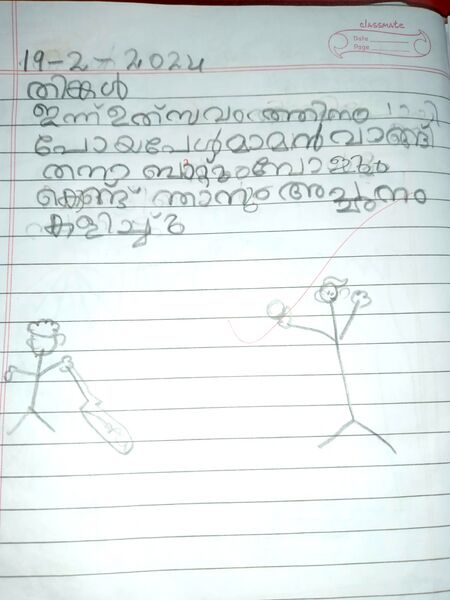 classmate
Date
Page
19-2-2024
തിങ്കൾ
ഇന്ന് ഉത്സവത്തിന്
പോയപേൾ മാമൻ വാങ്ങി
തന്നാ ബാറ്റും ബോളും
കെണ്ട് ഞാനും അച്ചനും
കളിച്ചു